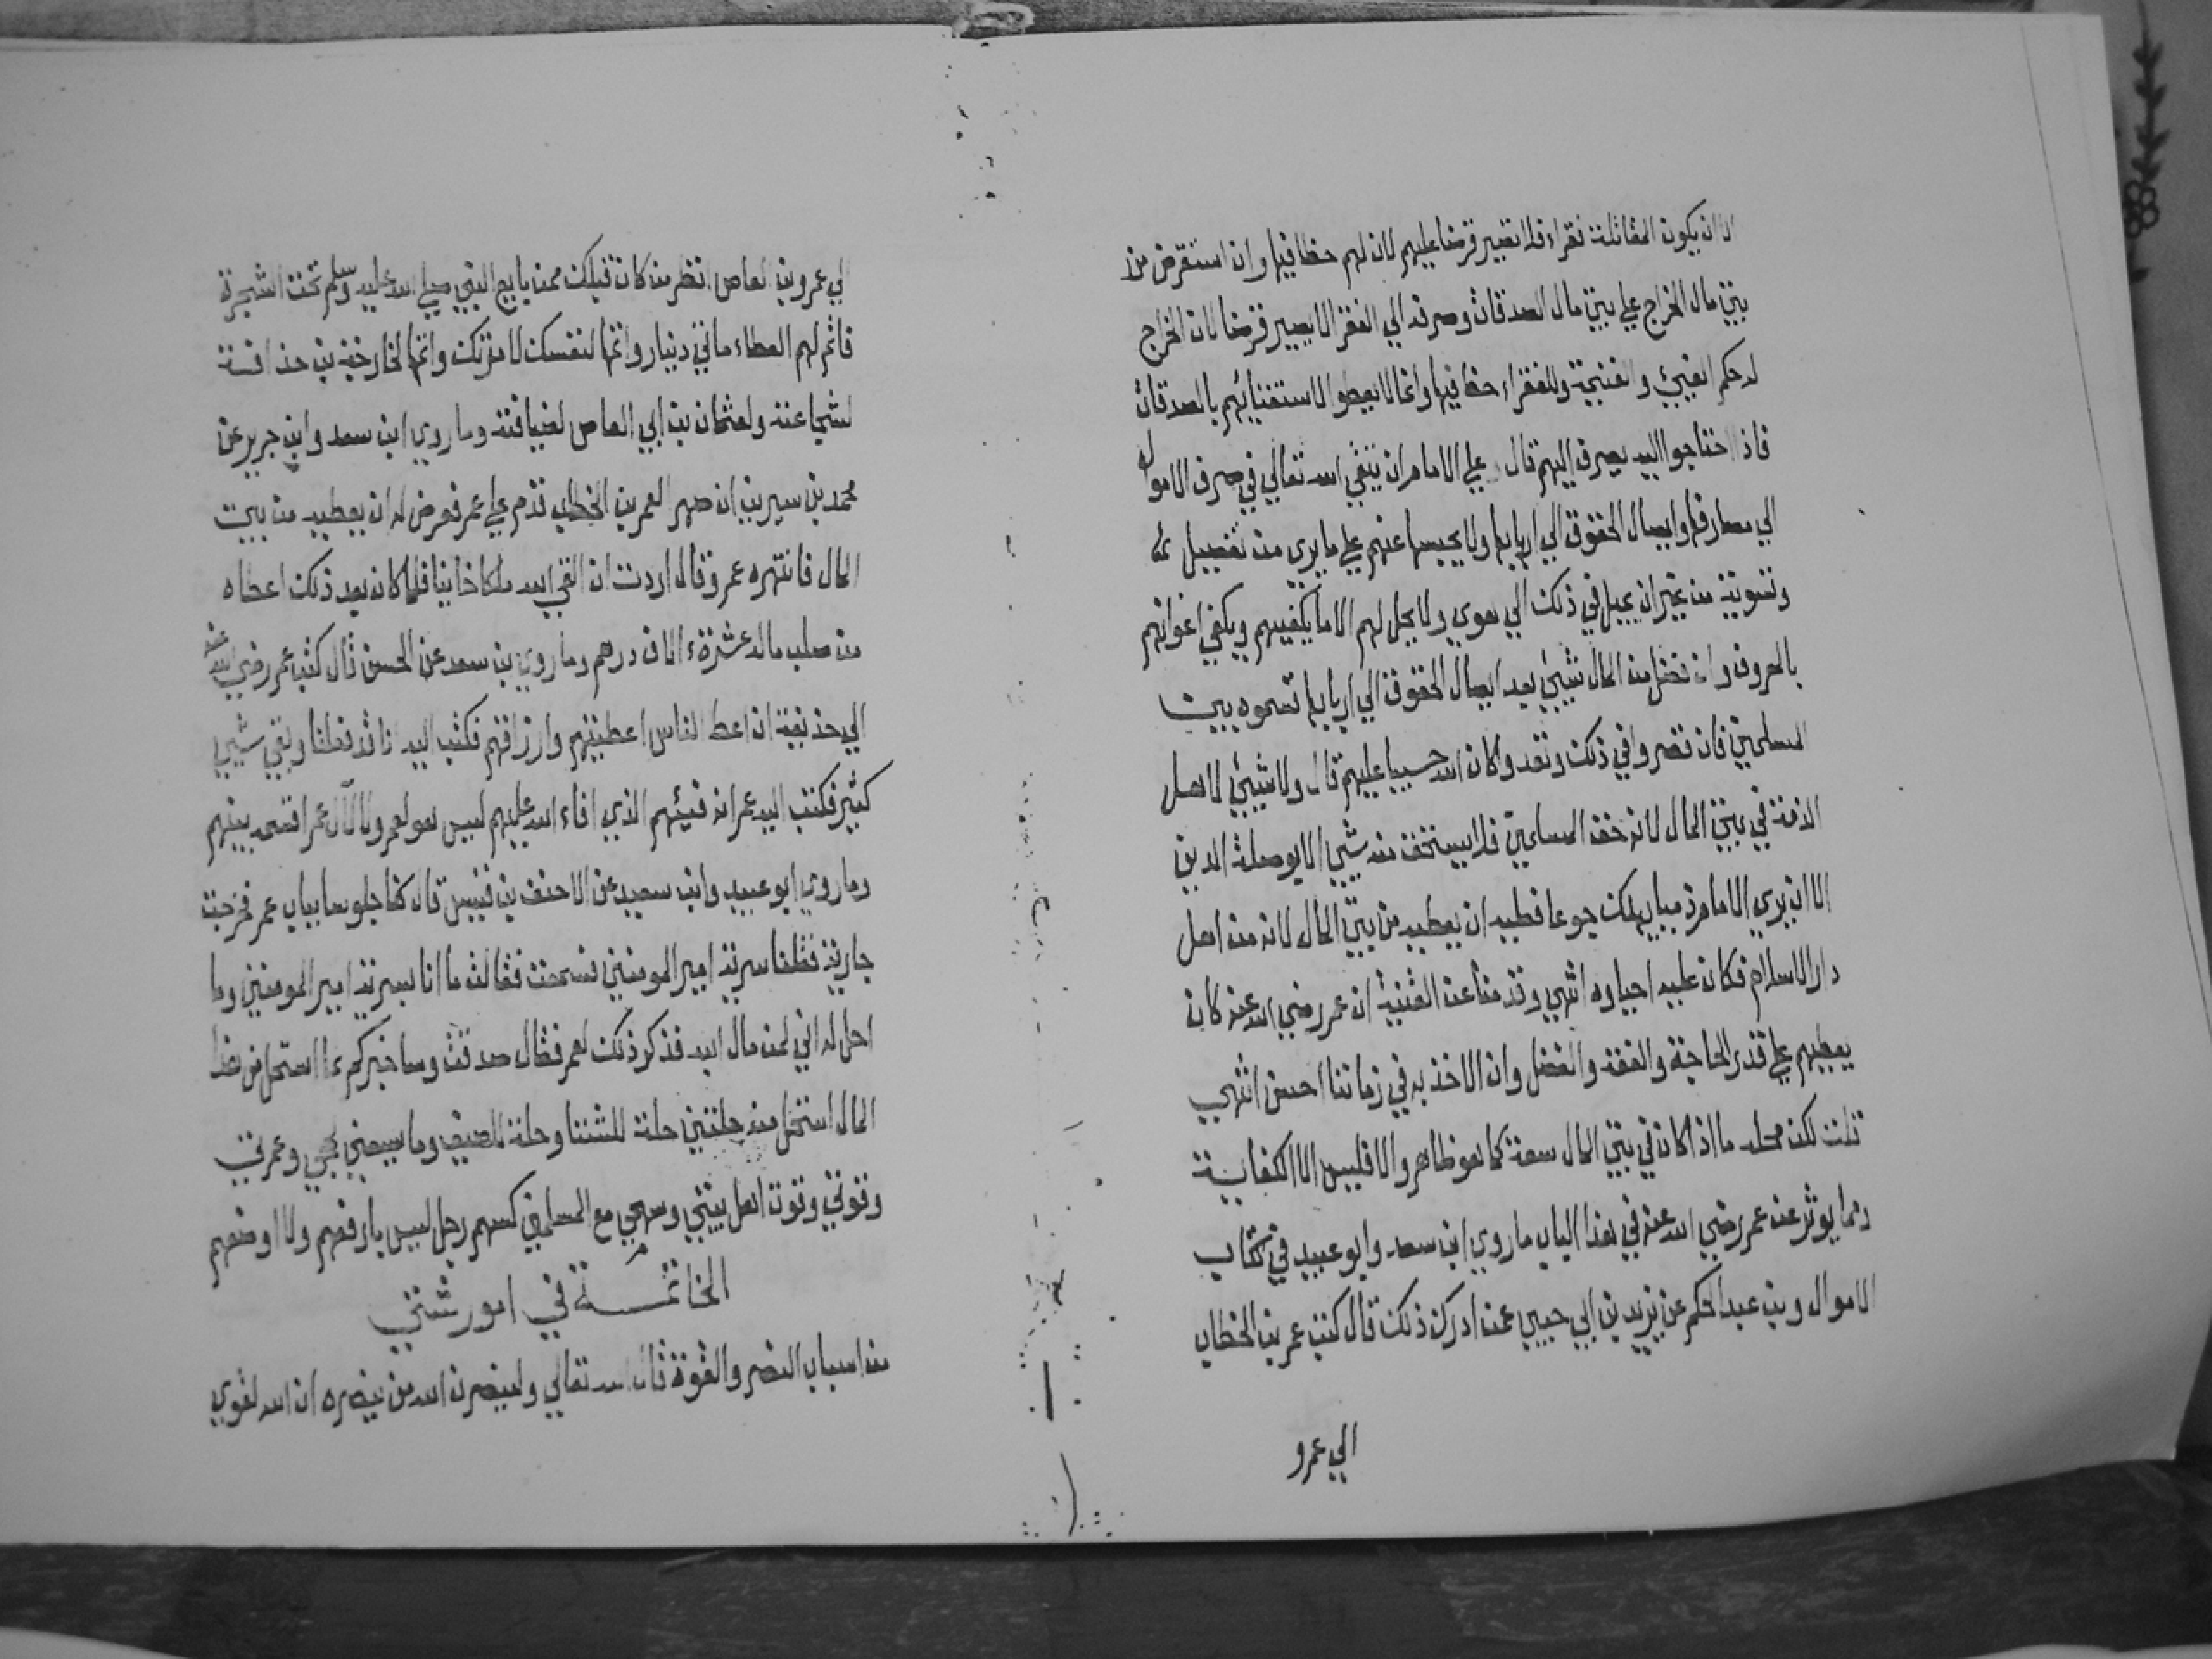 الا ان يكون المقاتلة فقراء فلا تصير قرضا عليهم لان لهم حظا فيها وان استقرض من
بيت مال الخراج علي بيت مال الصدقات وصرفه الي الفقرا لا يصير قرضا لان الخراج
له حكم الفيئ والغنيمة وللفقراء حظ فيها وانما لا يعطوا لاستغنائهم بالصدقات
فاذا احتاجوا اليه يصرف اليهم قال علي الامام ان يتقي الله تعالي في صرف الاموال
الي مصارفها وايصال الحقوق الي اربابها ولا يحبسها عنهم علي ما يري من تفضيل
وتسوية من غير ان يميل في ذلك الي هوي ولا يحل لهم الا ما يكفيهم ويكفي اعوانهم
بالمعروف وان فضل من المال شيئ بعد ايصال الحقوق الي اربابها قسموه بين
المسلمين فان قصروا في ذلك وقعدوا كان الله حسيبا عليهم قال ولا شيئ لاهل
الذمة في بيت المال لانه حق المسلمين فلا يستحق منه شيئ الا يوصله المدين
الا ان يري الامام ذميا يهلك جوعا فعليه ان يعطيه من بيت المال لانه من اهل
دار الاسلام فكان عليه احياوه انتهي وقدمنا عن القنية ان عمر رضي الله عنه كان
يعطيهم علي قدر الحاجة والفقه والفضل وان الاخذ به في زماننا احسن انتهي
قلت لكن محله ما اذا كان في بيت المال سعة كما هو ظاهر والا فليس الا الكفاية
ومما يوثر عن عمر رضي الله عنه في هذا الباب ما روي ابن سعد وابو عبيد في كتاب
الاموال وبن عبد الحكم عن يزيد بن ابي حبيب عمن ادرك ذلك قال كتب عمر بن الخطاب
الي عمرو
لي عمرو بن لعاص انظر من كان قبلك ممن بايع النبي صلي الله عليه وسلم تحت الشجرة
فاتم لهم العطاء مائتي دينار واتمها لنفسك لامرتك واتمها لخارجة بن حذافة
لشجاعته ولعثمان بن ابي العاص لضيافته وما روي ابن سعد وابن جرير عن
محمد بن سيرين ان صهر العمر بن الخطاب قدم علي عمر فعرض له ان يعطيه من بيت
المال فانتهره عمر وقال اردت ان القي الله ملكا خاينا فلما كان بعد ذلك اعطاه
من صلب ماله عشرة الاف درهم وما روي بن سعد عن الحسن قال كتب عمر رضي الله عنه
الي حذيفة ان اعط الناس اعطيتهم وارزاقهم فكتب اليه انا قد فعلنا وبقي شيئ
كثير فكتب اليه عمر انه فيئهم الذي افاء الله عليهم ليس هو لعمر ولا لآل عمر اقسمه بينهم
وما روي ابو عبيد وابن سعيد عن الاحنف بن قيس قال كنا جلوسا بباب عمر فخرجت
جارية فقلنا سرية امير المومنين فسمعت فقالت ما انا بسرية امير المومنين وما
احل له اني لمن مال الله فذكر ذلك لعمر فقال صدقت وساخبركم بما استحل من هذا
المال استحل منه حلتين حلة للشتا وحلة للصيف وما يسعني لحجي وعمرتي
وقوتي وقوت اهل بيتي وسهمي مع المسلمين كسهم رجل ليس بارفعهم ولا اوضعهم
الخاتمة في امور شتي
من اسباب النصر والقوة قال الله تعالي ولينصرن الله من ينصره ان الله لقوي